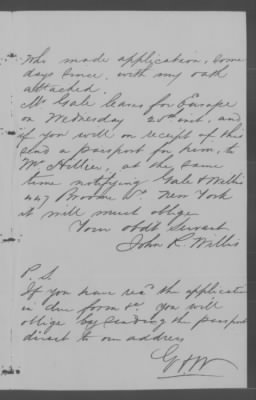 who made application, some
days since, with my oath
attached.
Mr Gale leaves for Europe
on Wednesday 20th inst, and
if you will on receipt of this
send a passport for him, to
Mr Hillier, at the same
time notifying Gale & Willis
447 Broome St. New York
it will much oblige
Your obdt Servant
John R. Willis
P. S.
If you have recd the application
in due form &c. You will
oblige by sending the passport
direct to our address
G & W